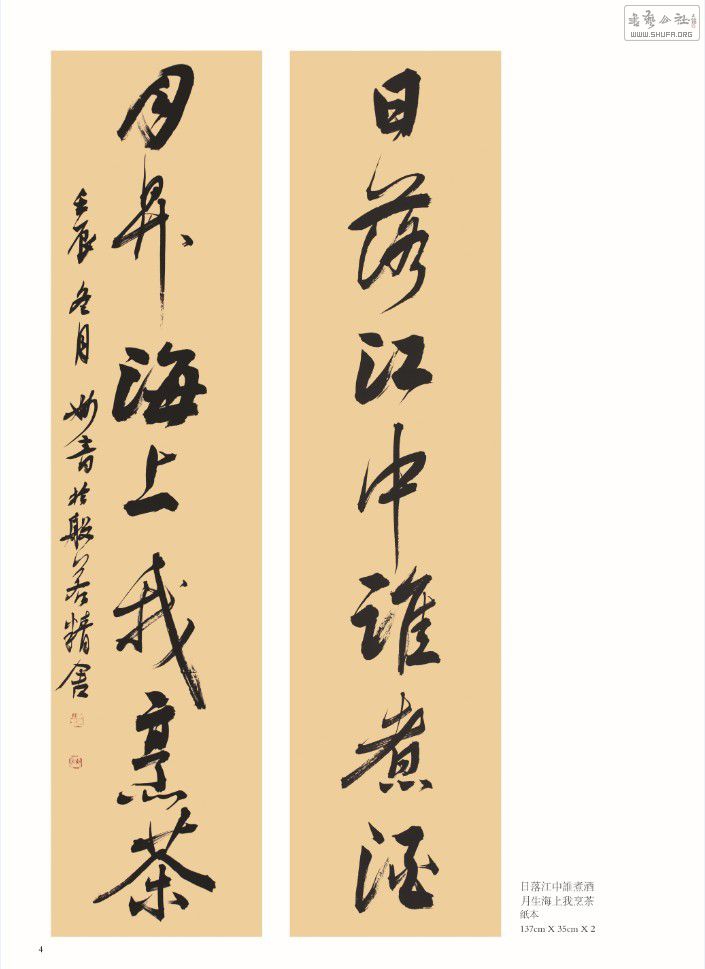 書艺公社
WWW.SHUFA.ORG
日落江中誰煮酒
月昇海上我烹茶
壬辰冬月妙音於般若精舍
日落江中誰煮酒
月生海上我烹茶
紙本
137cm X 35cm X 2
4